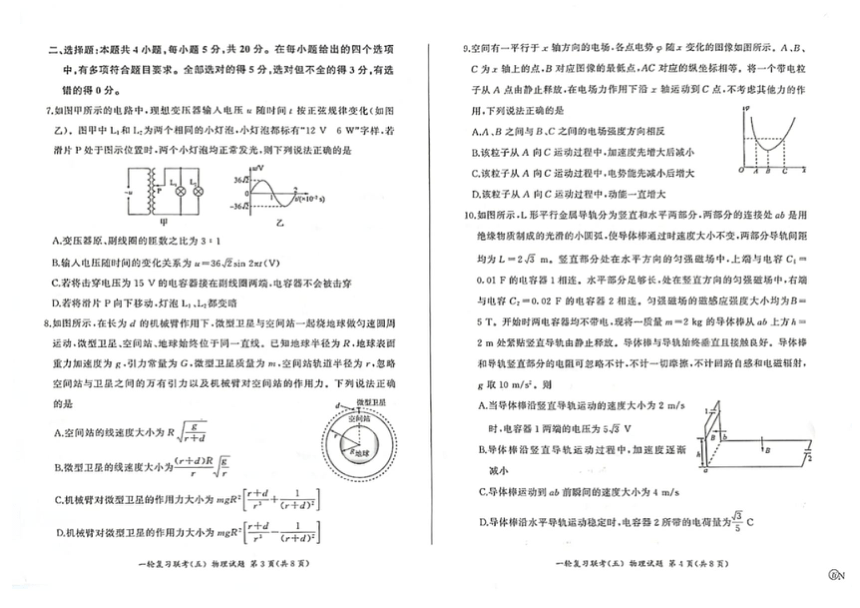 二、选择题:本题共 4 小题,每小题 5 分,共 20 分。在每小题给出的四个选项
中,有多项符合题目要求。全部选对的得 5 分,选对但不全的得 3 分,有选
错的得 0 分。
7.如图甲所示的电路中,理想变压器输入电压 u 随时间 t 按正弦规律变化(如图
乙)。图甲中 L₁和 L₂为两个相同的小灯泡,小灯泡都标有“12 V 6 W”字样,若
滑片 P 处于图示位置时,两个小灯泡均正常发光,则下列说法正确的是
~u
P
L₁
L₂
甲
u/V
36√2
0
1
2
t/(×10⁻² s)
-36√2
乙
A.变压器原、副线圈的匝数之比为 3:1
B.输入电压随时间的变化关系为 u=36√2sin 2πt(V)
C.若将击穿电压为 15 V 的电容器接在副线圈两端,电容器不会被击穿
D.若将滑片 P 向下移动,灯泡 L₁、L₂都变暗
8.如图所示,在长为 d 的机械臂作用下,微型卫星与空间站一起绕地球做匀速圆周
运动,微型卫星、空间站、地球始终位于同一直线。已知地球半径为 R,地球表面
重力加速度为 g,引力常量为 G,微型卫星质量为 m,空间站轨道半径为 r,忽略
空间站与卫星之间的万有引力以及机械臂对空间站的作用力。下列说法正确
的是
d
微型卫星
空间站
r
R
地球
A.空间站的线速度大小为 R√(g/(r+d))
B.微型卫星的线速度大小为 ((r+d)R/r)√(g/r)
C.机械臂对微型卫星的作用力大小为 mgR²[(r+d)/r³+1/(r+d)²]
D.机械臂对微型卫星的作用力大小为 mgR²[(r+d)/r³-1/(r+d)²]
一轮复习联考(五) 物理试题 第 3 页(共 8 页)
9.空间有一平行于 x 轴方向的电场,各点电势 φ 随 x 变化的图像如图所示。A、B、
C 为 x 轴上的点,B 对应图像的最低点,AC 对应的纵坐标相等。将一个带电粒
子从 A 点由静止释放,在电场力作用下沿 x 轴运动到 C 点,不考虑其他力的作
用,下列说法正确的是
φ
O
A
B
C
x
A.A、B 之间与 B、C 之间的电场强度方向相反
B.该粒子从 A 向 C 运动过程中,加速度先增大后减小
C.该粒子从 A 向 C 运动过程中,电势能先减小后增大
D.该粒子从 A 向 C 运动过程中,动能一直增大
10.如图所示,L 形平行金属导轨分为竖直和水平两部分,两部分的连接处 ab 是用
绝缘物质制成的光滑的小圆弧,使导体棒通过时速度大小不变,两部分导轨间距
均为 L=2√3 m。竖直部分处在水平方向的匀强磁场中,上端与电容 C₁=
0.01 F 的电容器 1 相连。水平部分足够长,处在竖直方向的匀强磁场中,右端
与电容 C₂=0.02 F 的电容器 2 相连。匀强磁场的磁感应强度大小均为 B=
5 T。开始时两电容器均不带电,现将一质量 m=2 kg 的导体棒从 ab 上方 h=
2 m 处紧贴竖直导轨由静止释放。导体棒与导轨始终垂直且接触良好。导体棒
和导轨竖直部分的电阻可忽略不计,不计一切摩擦,不计回路自感和电磁辐射,
g 取 10 m/s²。则
A.当导体棒沿竖直导轨运动的速度大小为 2 m/s
时,电容器 1 两端的电压为 5√3 V
B.导体棒沿竖直导轨运动过程中,加速度逐渐
减小
C.导体棒运动到 ab 前瞬间的速度大小为 4 m/s
D.导体棒沿水平导轨运动稳定时,电容器 2 所带的电荷量为 √3/5 C
1
B
b
h
a
B
2
一轮复习联考(五) 物理试题 第 4 页(共 8 页)